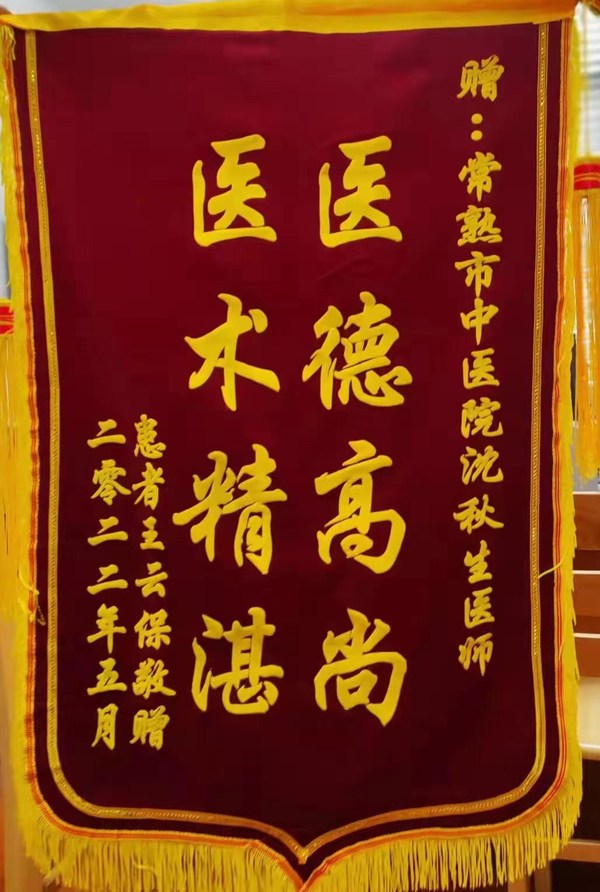 赠：常熟市中医院沈秋生医师
医德高尚
医术精湛
患者王云保敬赠
二零二二年五月